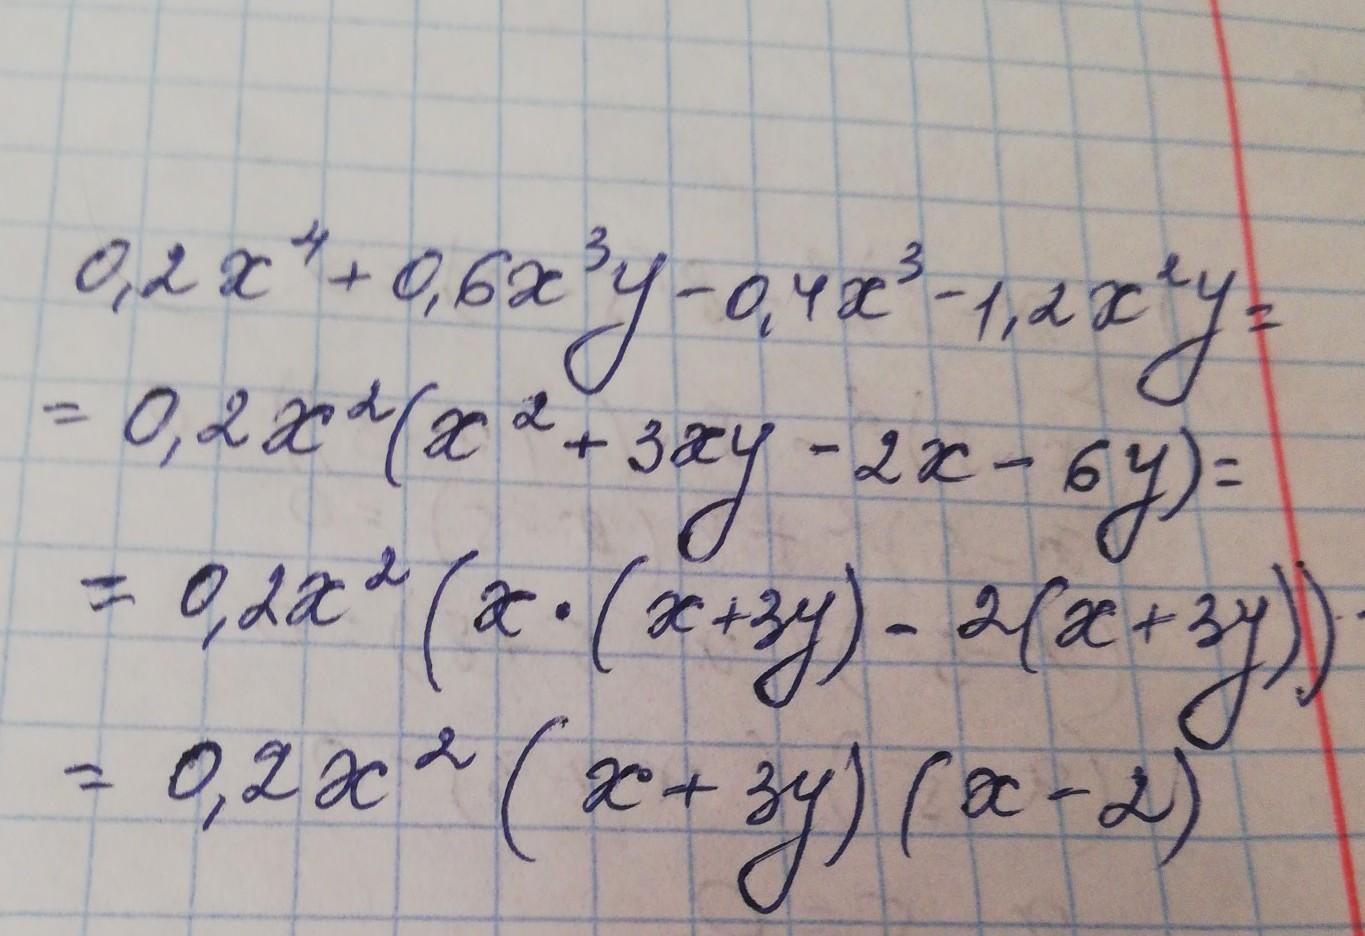 0,2x⁴+0,6x³y-0,4x³-1,2x²y=
= 0,2x²(x²+3xy-2x-6y)=
= 0,2x²(x·(x+3y)-2(x+3y))
= 0,2x²(x+3y)(x-2)